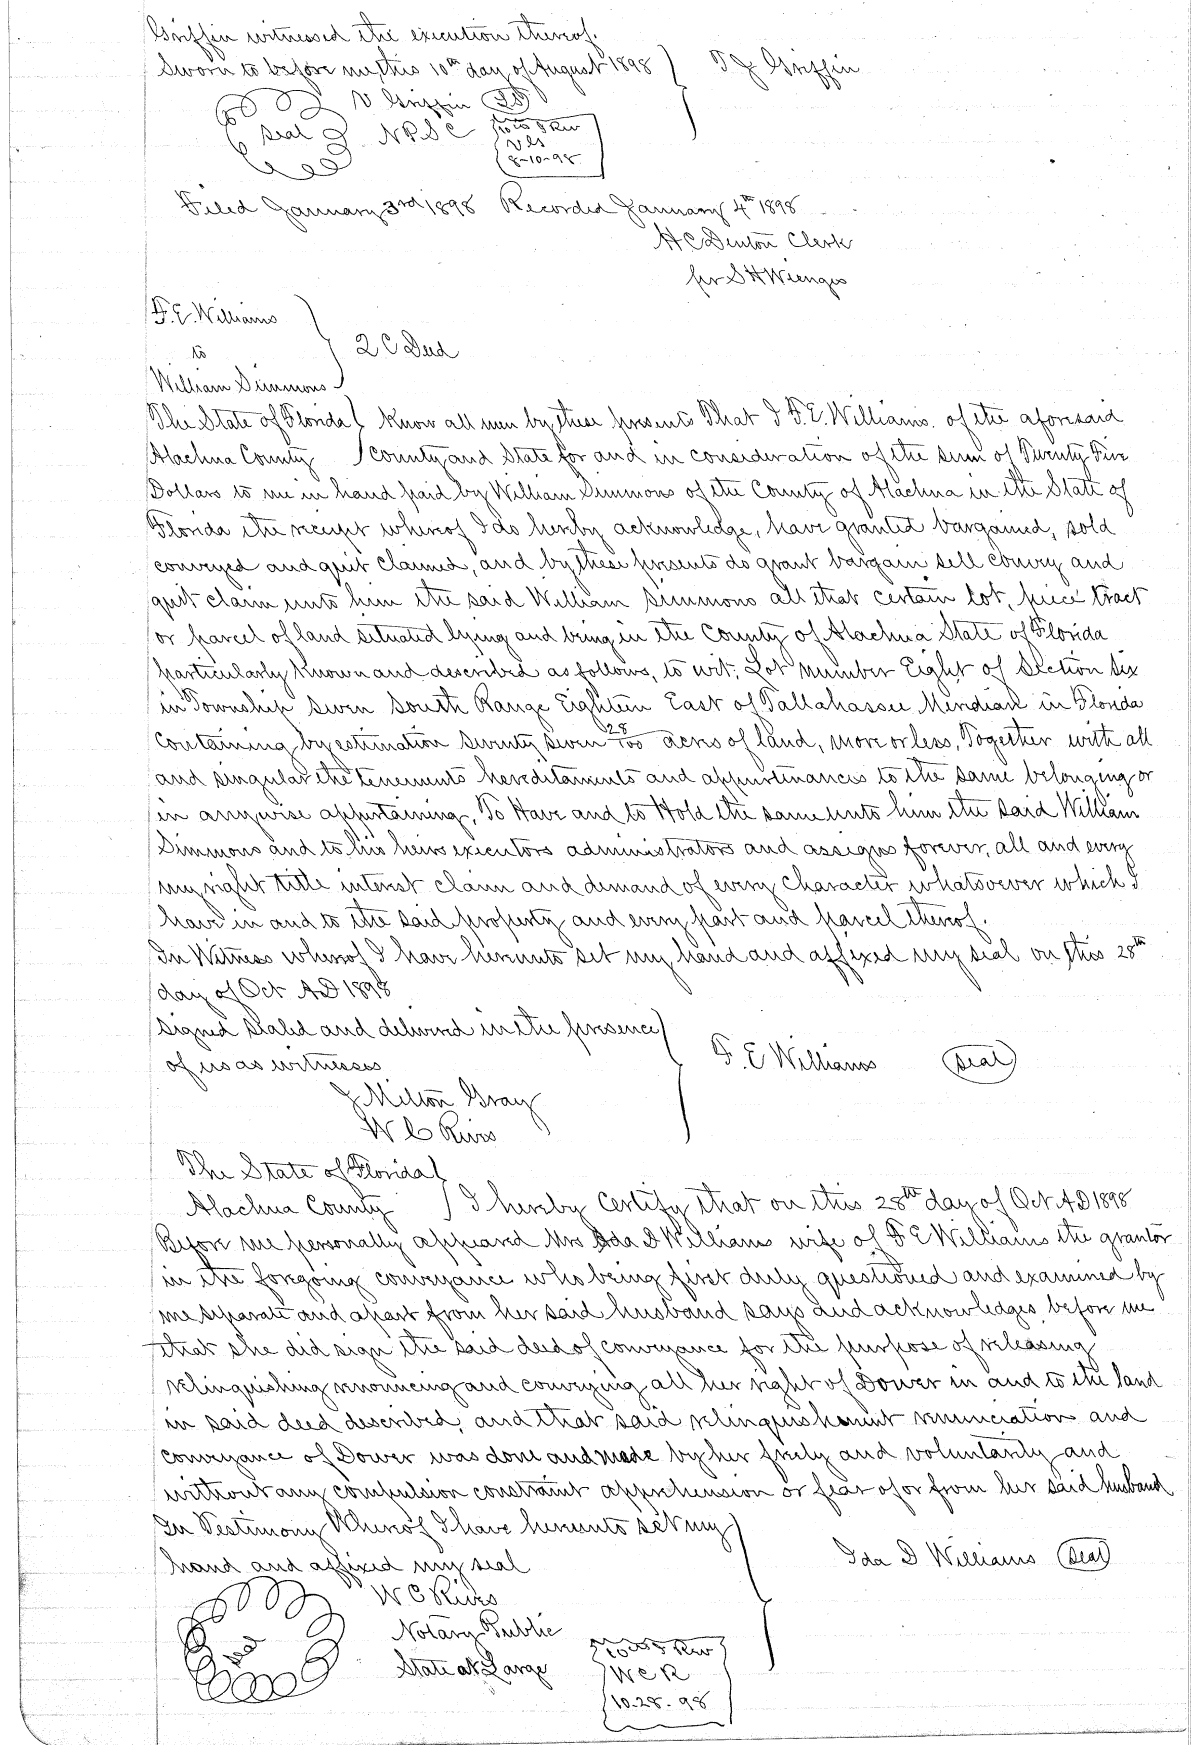 Griffin witnessed the execution thereof.
Sworn to before me, this 10th day of August 1898 T J Griffin
V Griffin LS
Seal N P S C 10 cts I Rev
V G
8-10-98
Filed January 3rd 1898 Recorded January 4th 1898
H C Denton Clerk
per S H Wienges
F. E. Williams
to
2 C Deed
William Simmons
The State of Florida Know all men by these presents That I F. E. Williams. of the aforesaid
Alachua County County and State for and in consideration of the sum of Twenty Five
Dollars to me in hand paid by William Simmons of the County of Alachua in the State of
Florida the receipt whereof I do hereby acknowledge, have granted bargained, sold
conveyed and quit claimed, and by these presents do grant bargain sell convey and
quit claim unto him the said William Simmons all that certain lot, piece tract
or parcel of land situated lying and being in the County of Alachua State of Florida
particularly known and described as follows, to wit; Lot number Eight of Section Six
in Township Seven South Range Eighteen East of Tallahassee Meridian in Florida
Containing by estimation Seventy seven 28/100 acres of land, more or less, Together with all
and singular the tenements hereditaments and appurtenances to the same belonging or
in anywise appertaining, To Have and to Hold the same unto him the said William
Simmons and to his heirs executors administrators and assigns forever, all and every
my right title interest claim and demand of every character whatsoever which I
have in and to the said property and every part and parcel thereof.
In Witness whereof I have hereunto set my hand and affixed my seal on this 28th
day of Oct AD 1898
Signed Sealed and delivered in the presence
of us as witnesses F. E Williams Seal
J Milton Gray
W C Rives
The State of Florida
Alachua County I hereby Certify that on this 28th day of Oct AD 1898
Before me personally appeared Mrs Ida D Williams wife of F E Williams the grantor
in the foregoing conveyance who being first duly questioned and examined by
me separate and apart from her said husband says and acknowledges before me
that she did sign the said deed of conveyance for the purpose of releasing
relinquishing renouncing and conveying all her right of Dower in and to the land
in said deed described, and that said relinquishment renunciation and
conveyance of Dower was done and made by her freely and voluntarily and
without any compulsion constraint apprehension or fear of or from her said husband
In Testimony Whereof I have hereunto set my
hand and affixed my seal Ida D Williams Seal
W C Rives
Notary Public
Seal State at Large
10 cts I Rev
W C R
10-28-98